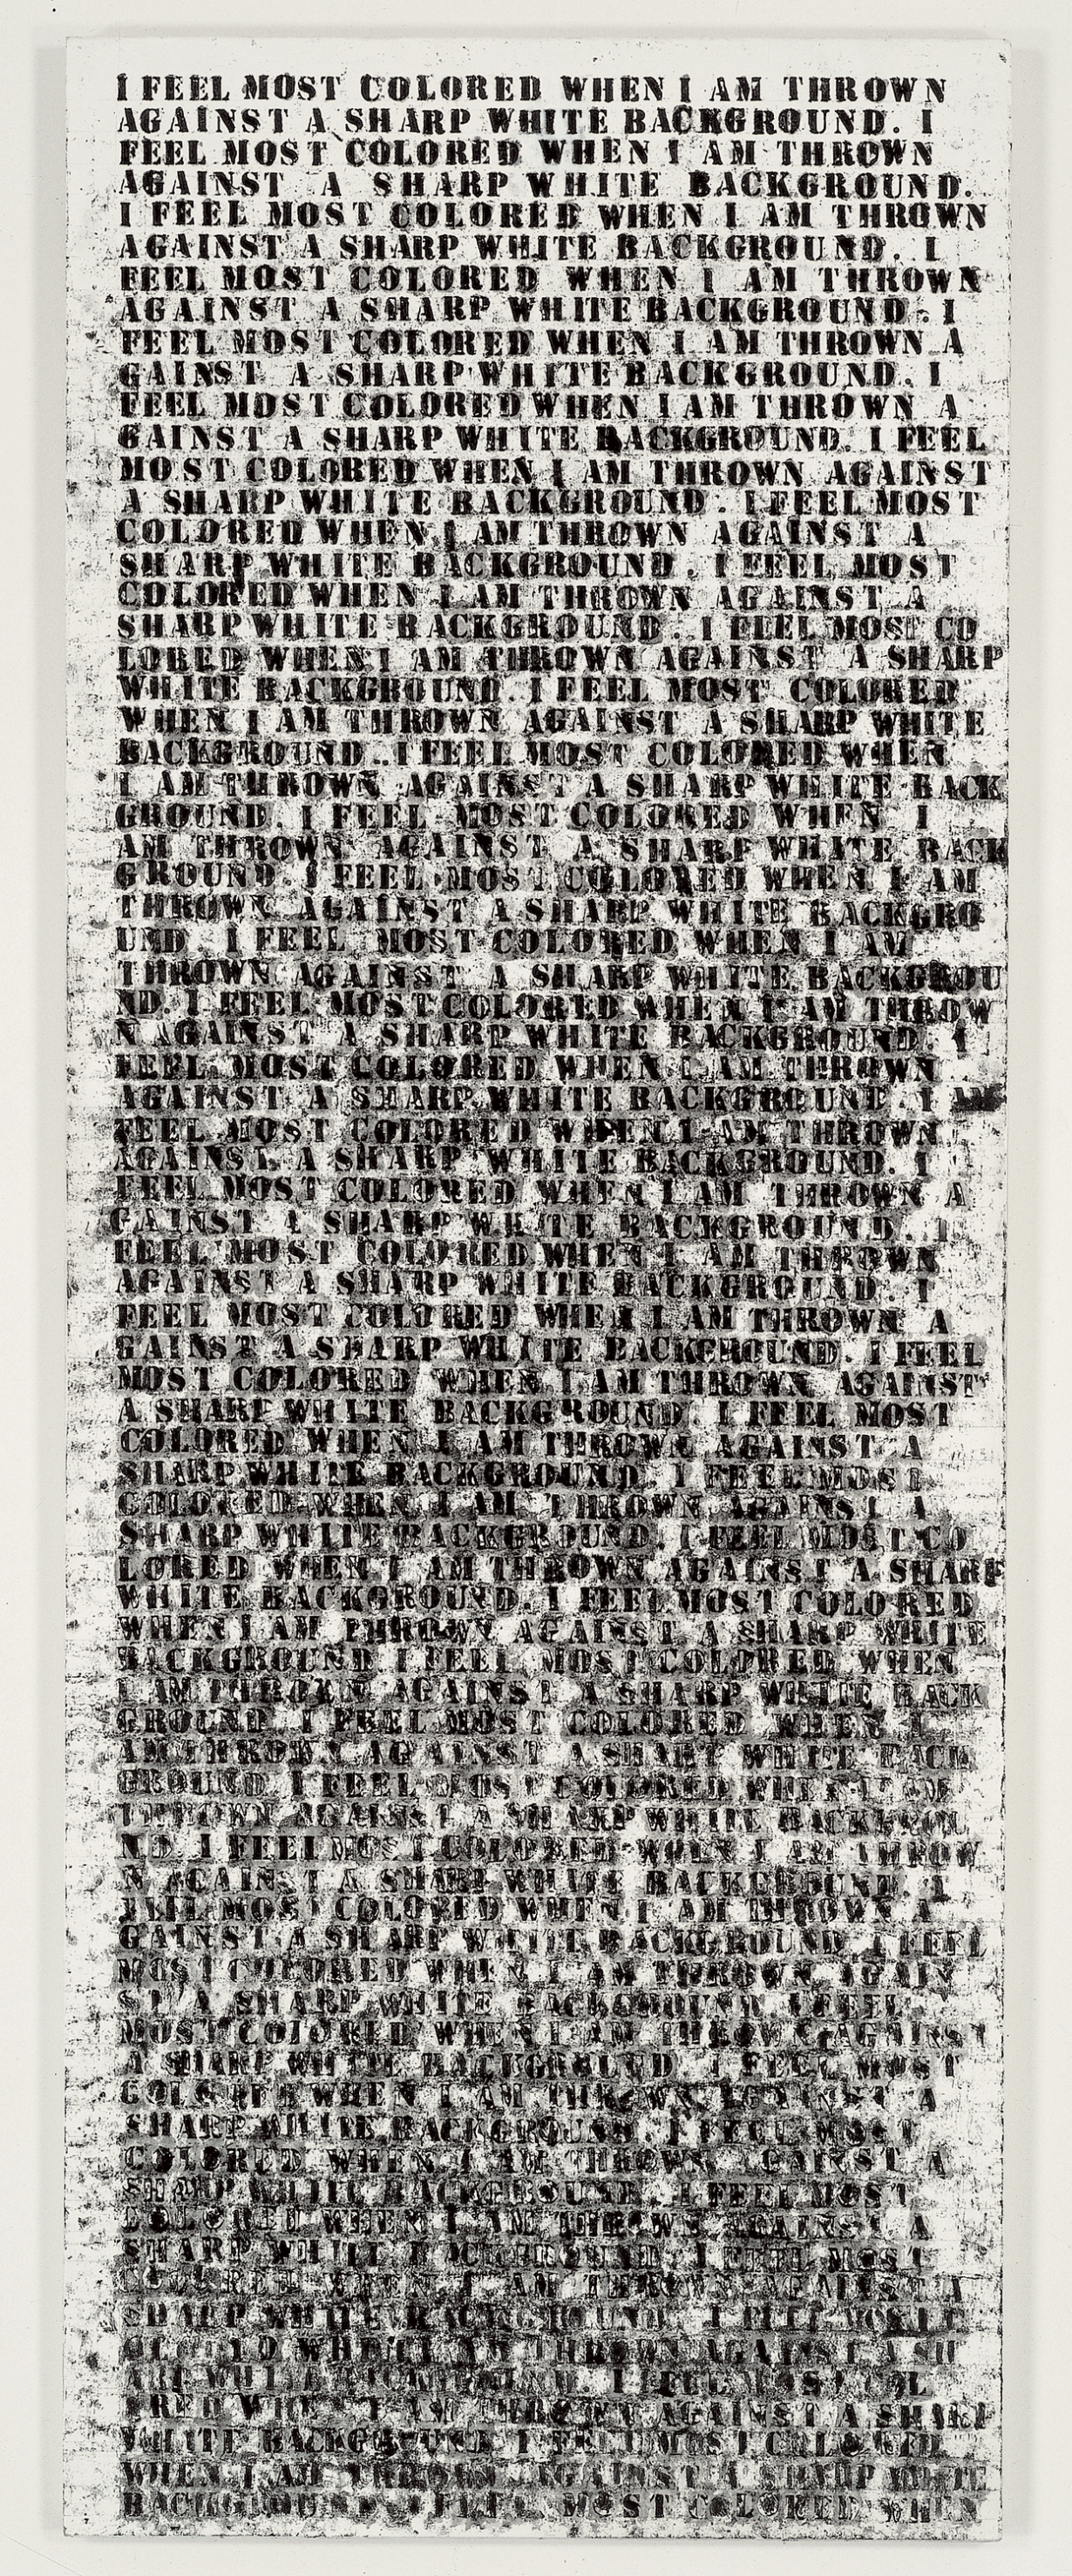 I FEEL MOST COLORED WHEN I AM THROWN
AGAINST A SHARP WHITE BACKGROUND. I
FEEL MOST COLORED WHEN I AM THROWN
AGAINST A SHARP WHITE BACKGROUND.
I FEEL MOST COLORED WHEN I AM THROWN
AGAINST A SHARP WHITE BACKGROUND. I
FEEL MOST COLORED WHEN I AM THROWN
AGAINST A SHARP WHITE BACKGROUND. I
FEEL MOST COLORED WHEN I AM THROWN A
GAINST A SHARP WHITE BACKGROUND. I
FEEL MOST COLORED WHEN I AM THROWN A
GAINST A SHARP WHITE BACKGROUND. I FEEL
MOST COLORED WHEN I AM THROWN AGAINST
A SHARP WHITE BACKGROUND. I FEEL MOST
COLORED WHEN I AM THROWN AGAINST A
SHARP WHITE BACKGROUND. I FEEL MOST
COLORED WHEN I AM THROWN AGAINST A
SHARP WHITE BACKGROUND. I FEEL MOST CO
LORED WHEN I AM THROWN AGAINST A SHARP
WHITE BACKGROUND. I FEEL MOST COLORED
WHEN I AM THROWN AGAINST A SHARP WHITE
BACKGROUND.. I FEEL MOST COLORED WHEN
I AM THROWN AGAINST A SHARP WHITE BACK
GROUND. I FEEL MOST COLORED WHEN I
AM THROWN AGAINST A SHARP WHITE BACK
GROUND. I FEEL MOST COLORED WHEN I AM
THROWN AGAINST A SHARP WHITE BACKGRO
UND I FEEL MOST COLORED WHEN I AM
THROWN AGAINST A SHARP WHITE BACKGROU
ND. I FEEL MOST COLORED WHEN I AM THROW
N AGAINST A SHARP WHITE BACKGROUND. I
FEEL MOST COLORED WHEN I AM THROWN
AGAINST A SHARP WHITE BACKGROUND. I
FEEL MOST COLORED WHEN I AM THROWN
AGAINST A SHARP WHITE BACKGROUND. I
FEEL MOST COLORED WHEN I AM THROWN A
GAINST A SHARP WHITE BACKGROUND. I
FEEL MOST COLORED WHEN I AM THROWN
AGAINST A SHARP WHITE BACKGROUND. I
FEEL MOST COLORED WHEN I AM THROWN A
GAINST A SHARP WHITE BACKGROUND. I FEEL
MOST COLORED WHEN I AM THROWN AGAINST
A SHARP WHITE BACKGROUND I FEEL MOST
COLORED WHEN I AM THROWN AGAINST A
SHARP WHITE BACKGROUND. I FEEL MOST
COLORED WHEN I AM THROWN AGAINST A
SHARP WHITE BACKGROUND. I FEEL MOST CO
LORED WHEN I AM THROWN AGAINST A SHARP
WHITE BACKGROUND. I FEEL MOST COLORED
WHEN I AM THROWN AGAINST A SHARP WHITE
BACKGROUND I FEEL MOST COLORED WHEN
I AM THROWN AGAINST A SHARP WHITE BACK
GROUND I FEEL MOST COLORED WHEN I
AM THROWN AGAINST A SHARP WHITE BACK
GROUND I FEEL MOST COLORED WHEN I AM
THROWN AGAINST A SHARP WHITE BACKGROU
ND. I FEEL MOST COLORED WHEN I AM THROW
N AGAINST A SHARP WHITE BACKGROUND. I
FEEL MOST COLORED WHEN I AM THROWN A
GAINST A SHARP WHITE BACKGROUND. I FEEL
MOST COLORED WHEN I AM THROWN AGAIN
ST A SHARP WHITE BACKGROUND I FEEL
MOST COLORED WHEN I AM THROWN AGAINST
A SHARP WHITE BACKGROUND I FEEL MOST
COLORED WHEN I AM THROWN AGAINST A
SHARP WHITE BACKGROUND I FEEL MOST
COLORED WHEN I AM THROWN AGAINST A
SHARP WHITE BACKGROUND. I FEEL MOST
COLORED WHEN I AM THROWN AGAINST A
SHARP WHITE BACKGROUND. I FEEL MOST
COLORED WHEN I AM THROWN AGAINST A
SHARP WHITE BACKGROUND. I FEEL MOST
WHEN I AM THROWN AGAINST A SH
ARP WHITE I FEEL MOST COL
ORED WHEN I AM THROWN AGAINST A SHARP
WHITE BACKGROUND I FEEL MOST COLORED
WHEN I AM THROWN AGAINST A SHARP WHITE
BACKGROUND I FEEL MOST COLORED WHEN